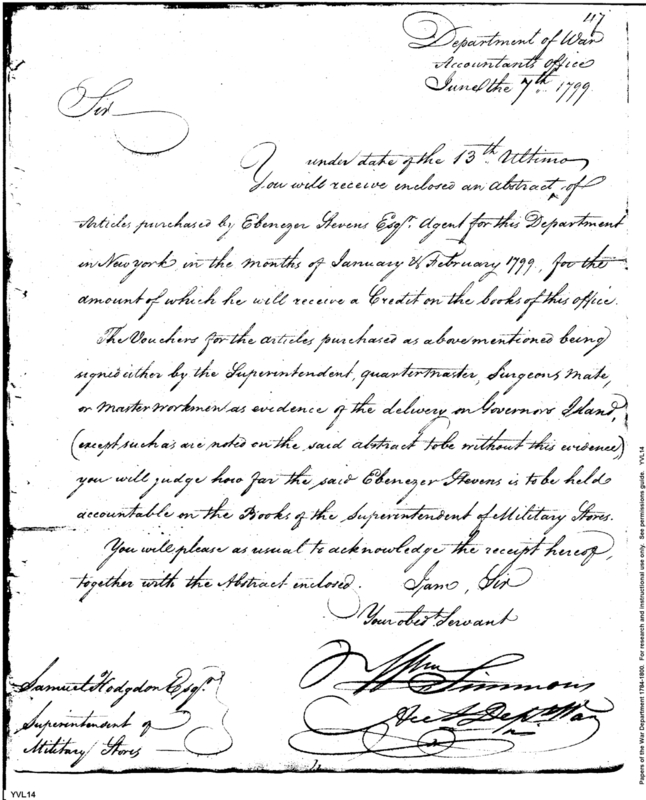 117
Department of War
Accountants office
June the 7th 1799
Sir
under date of the 13th Ultimo
You will receive enclosed an abstract ‸ of
Articles purchased by Ebenezer Stevens Esqr. Agent for this Department
in New york in the months of January & February 1799, for the
amount of which he will receive a Credit on the books of this office.
The Vouchers for the articles purchased as above mentioned being
signed either by the Superintendent, quartermaster, Surgeons Mate,
or Master workmen as evidence of the delivery on Governors Island,
(except such as are noted on the said abstract to be without this evidence,)
you will judge how far the said Ebenezer Stevens is to be held
accountable on the Books of the Superintendent of Military Stores.
You will please as usual to acknowledge the receipt hereof,
together with the Abstract enclosed. I am, Sir
Your obedt. Servant
Wm Simmons
Acct Dept War
Samuel Hodgdon Esqr.
Superintendent of
Military Stores
YVL14
Papers of the War Department 1784-1800. For research and instructional use only. See permissions guide. YVL14